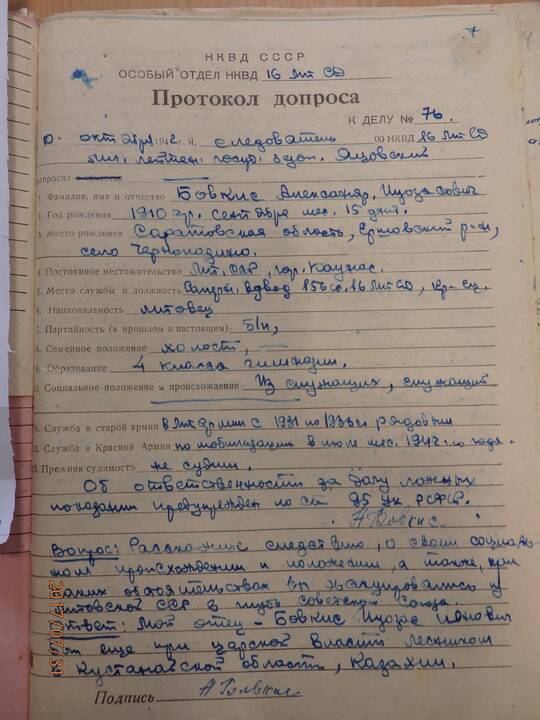 7
НКВД СССР
ОСОБЫЙ ОТДЕЛ НКВД 16 Лит СД
Протокол допроса
К ДЕЛУ № 76.
октября 1942 г. Я, следователь ОО НКВД 16 Лит СД
мл. лейтен. госуд. безоп. Яцовский
допросил
1. Фамилия, имя и отчество Бовкис Александр, Иуозасович
2. Год рождения 1910 г., сентября мес. 15 дня.
3. Место рождения Саратовская область, р-н,
село
4. Постоянное местожительство Лит. ССР, гор. Каунас.
5. Место службы и должность 156 сп. 16 Лит СД,
6. Национальность литовец
7. Партийность (в прошлом и настоящем) б/п,
8. Семейное положение холост,
9. Образование 4 класса гимназии.
10. Социальное положение и происхождение Из служащих, служащий
11. Служба в старой армии в Литармии с 1931 по рядовым
12. Служба в Красной Армии по мобилизации в июле мес. 1942-го года.
13. Прежняя судимость не судим.
Об ответственности за дачу ложных
показаний предупрежден по ст 95 УК РСФСР.
А Бовкис.
Вопрос: следствию, о своем социаль-
ном происхождении и положении, а также, при
каких обстоятельствах вы эвакуировались из
Литовской ССР в глубь Советского Союза.
Ответ: Мой отец - Бовкис Иуозас
был еще при царской власти лесником
Кустанайской области, Казахии.
Подпись А Бовкис.